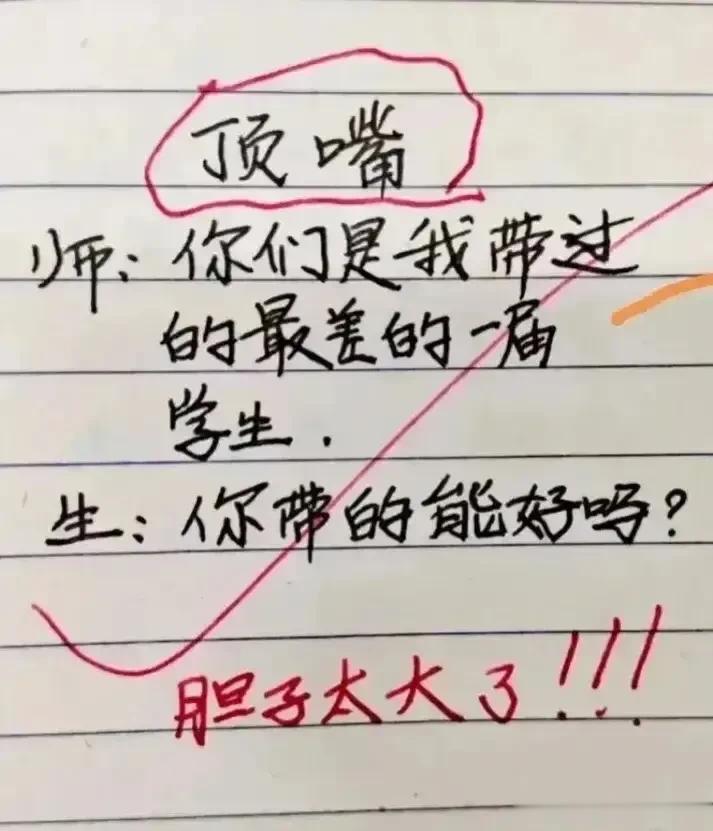 顶嘴
师：你们是我带过
的最差的一届
学生．
生：你带的能好吗？
胆子太大了!!!